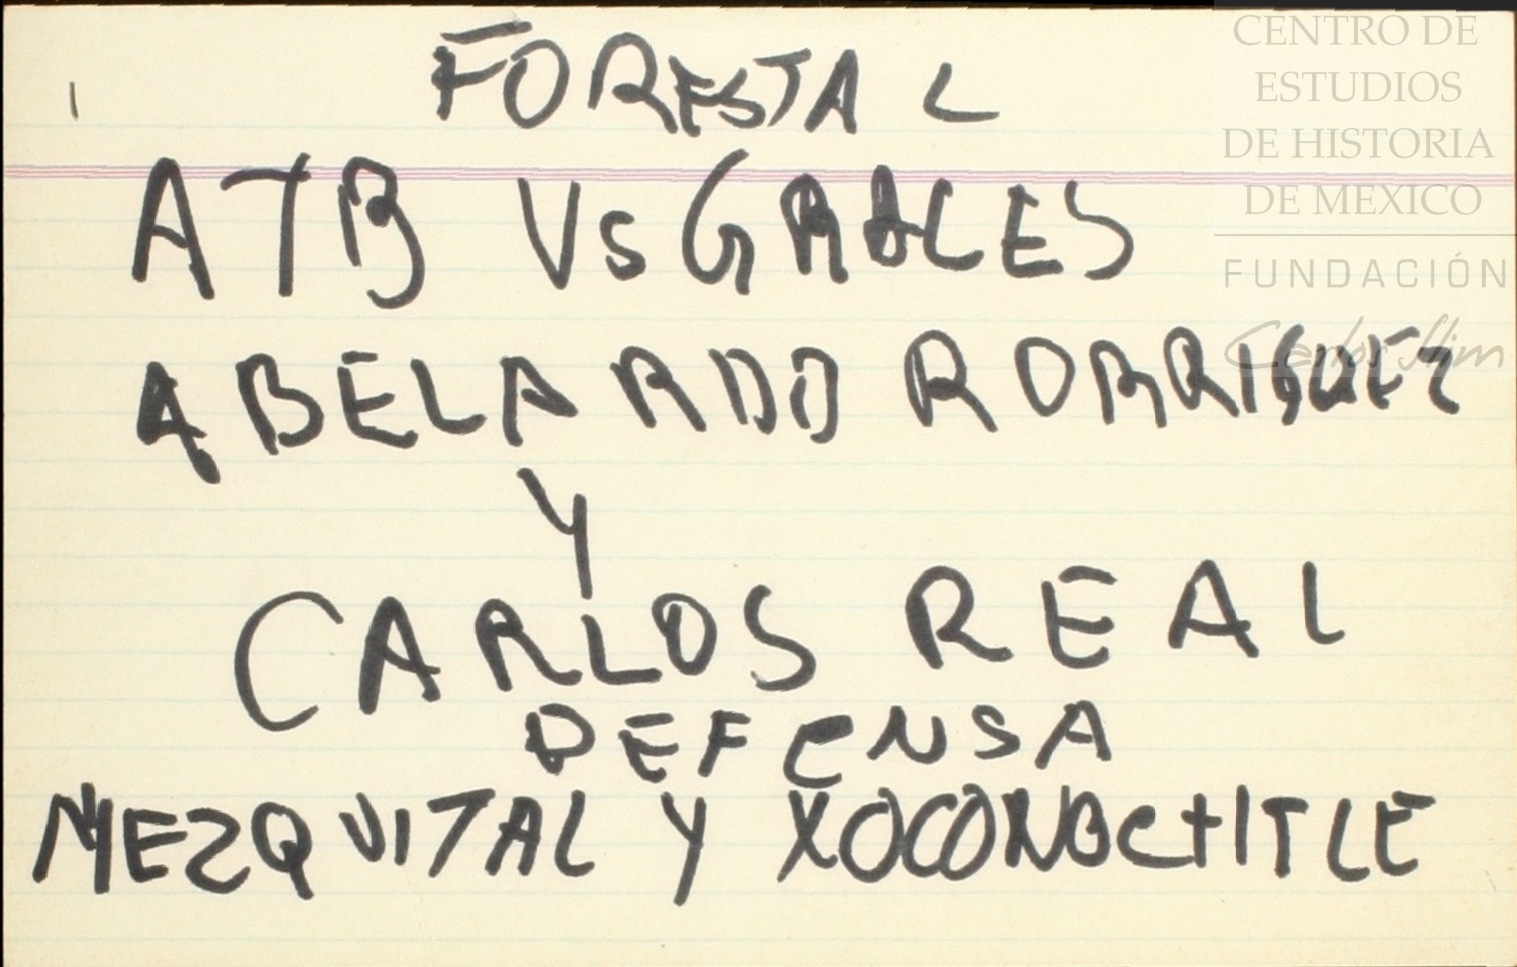 FORESTAL
ATB Vs GRALES
ABELARDO RORRIGUEZ
Y
CARLOS REAL
DEFENSA
MEZQUITAL Y XOCONOCHTLE
CENTRO DE
ESTUDIOS
DE HISTORIA
DE MEXICO
FUNDACIÓN
Carlos Slim